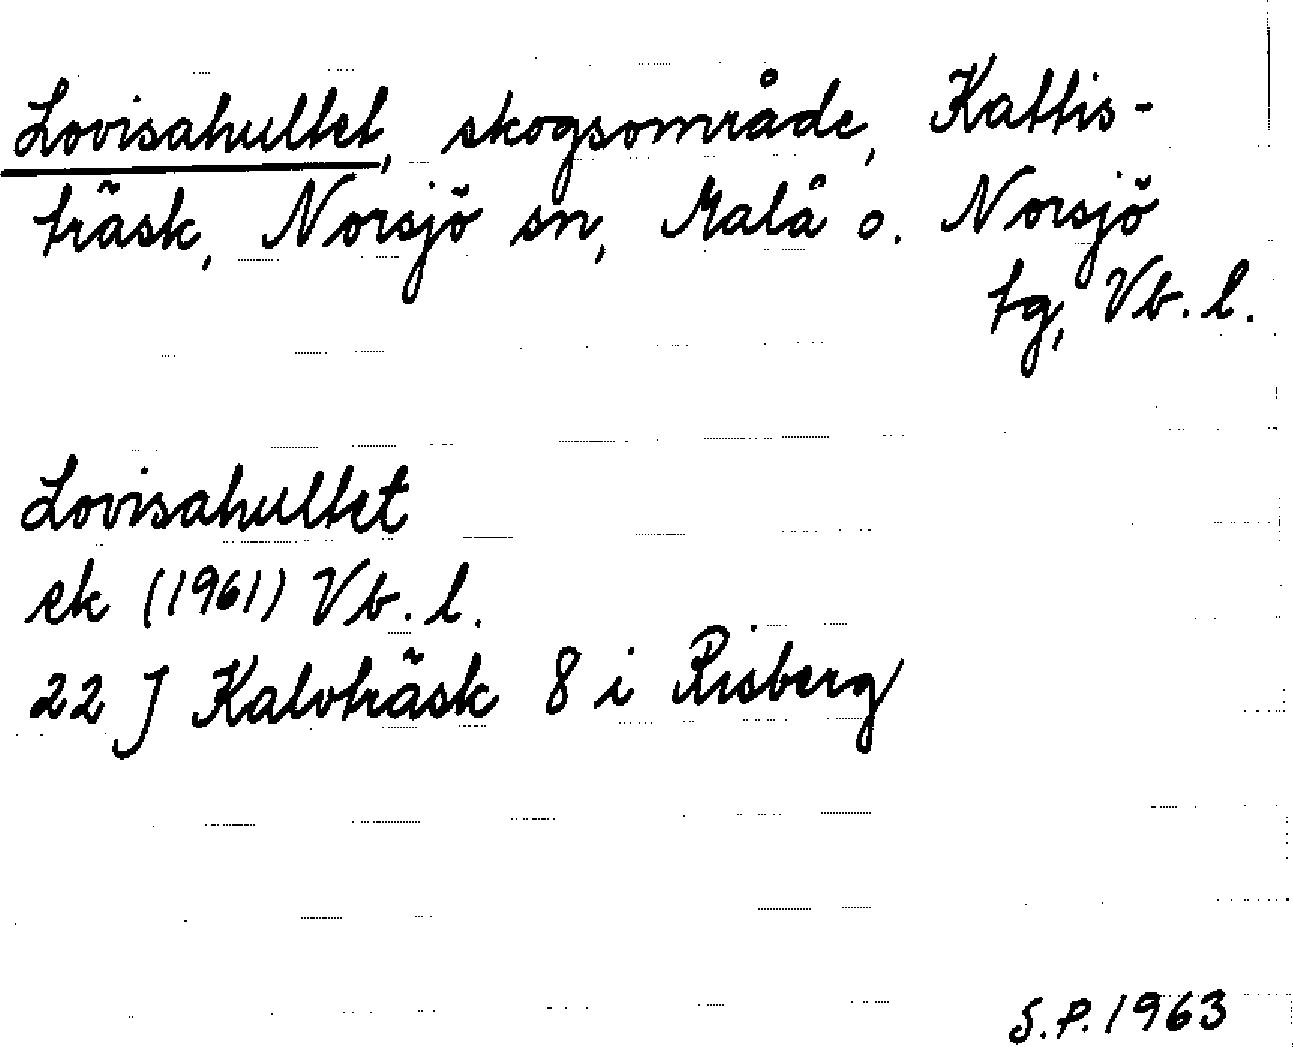 Lovisahultet, skogsområde, Kattis-
träsk, Norsjö sn, Malå o. Norsjö
tg, Vb. l.
Lovisahultet
ek (1961) Vb. l.
22 J Kalvträsk 8 i Risberg
S.P. 1963